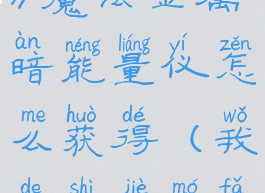 àn néng liáng yí zěn
暗能量仪怎
me huò dé wǒ
么获得（我
de shì jiè mó fǎ